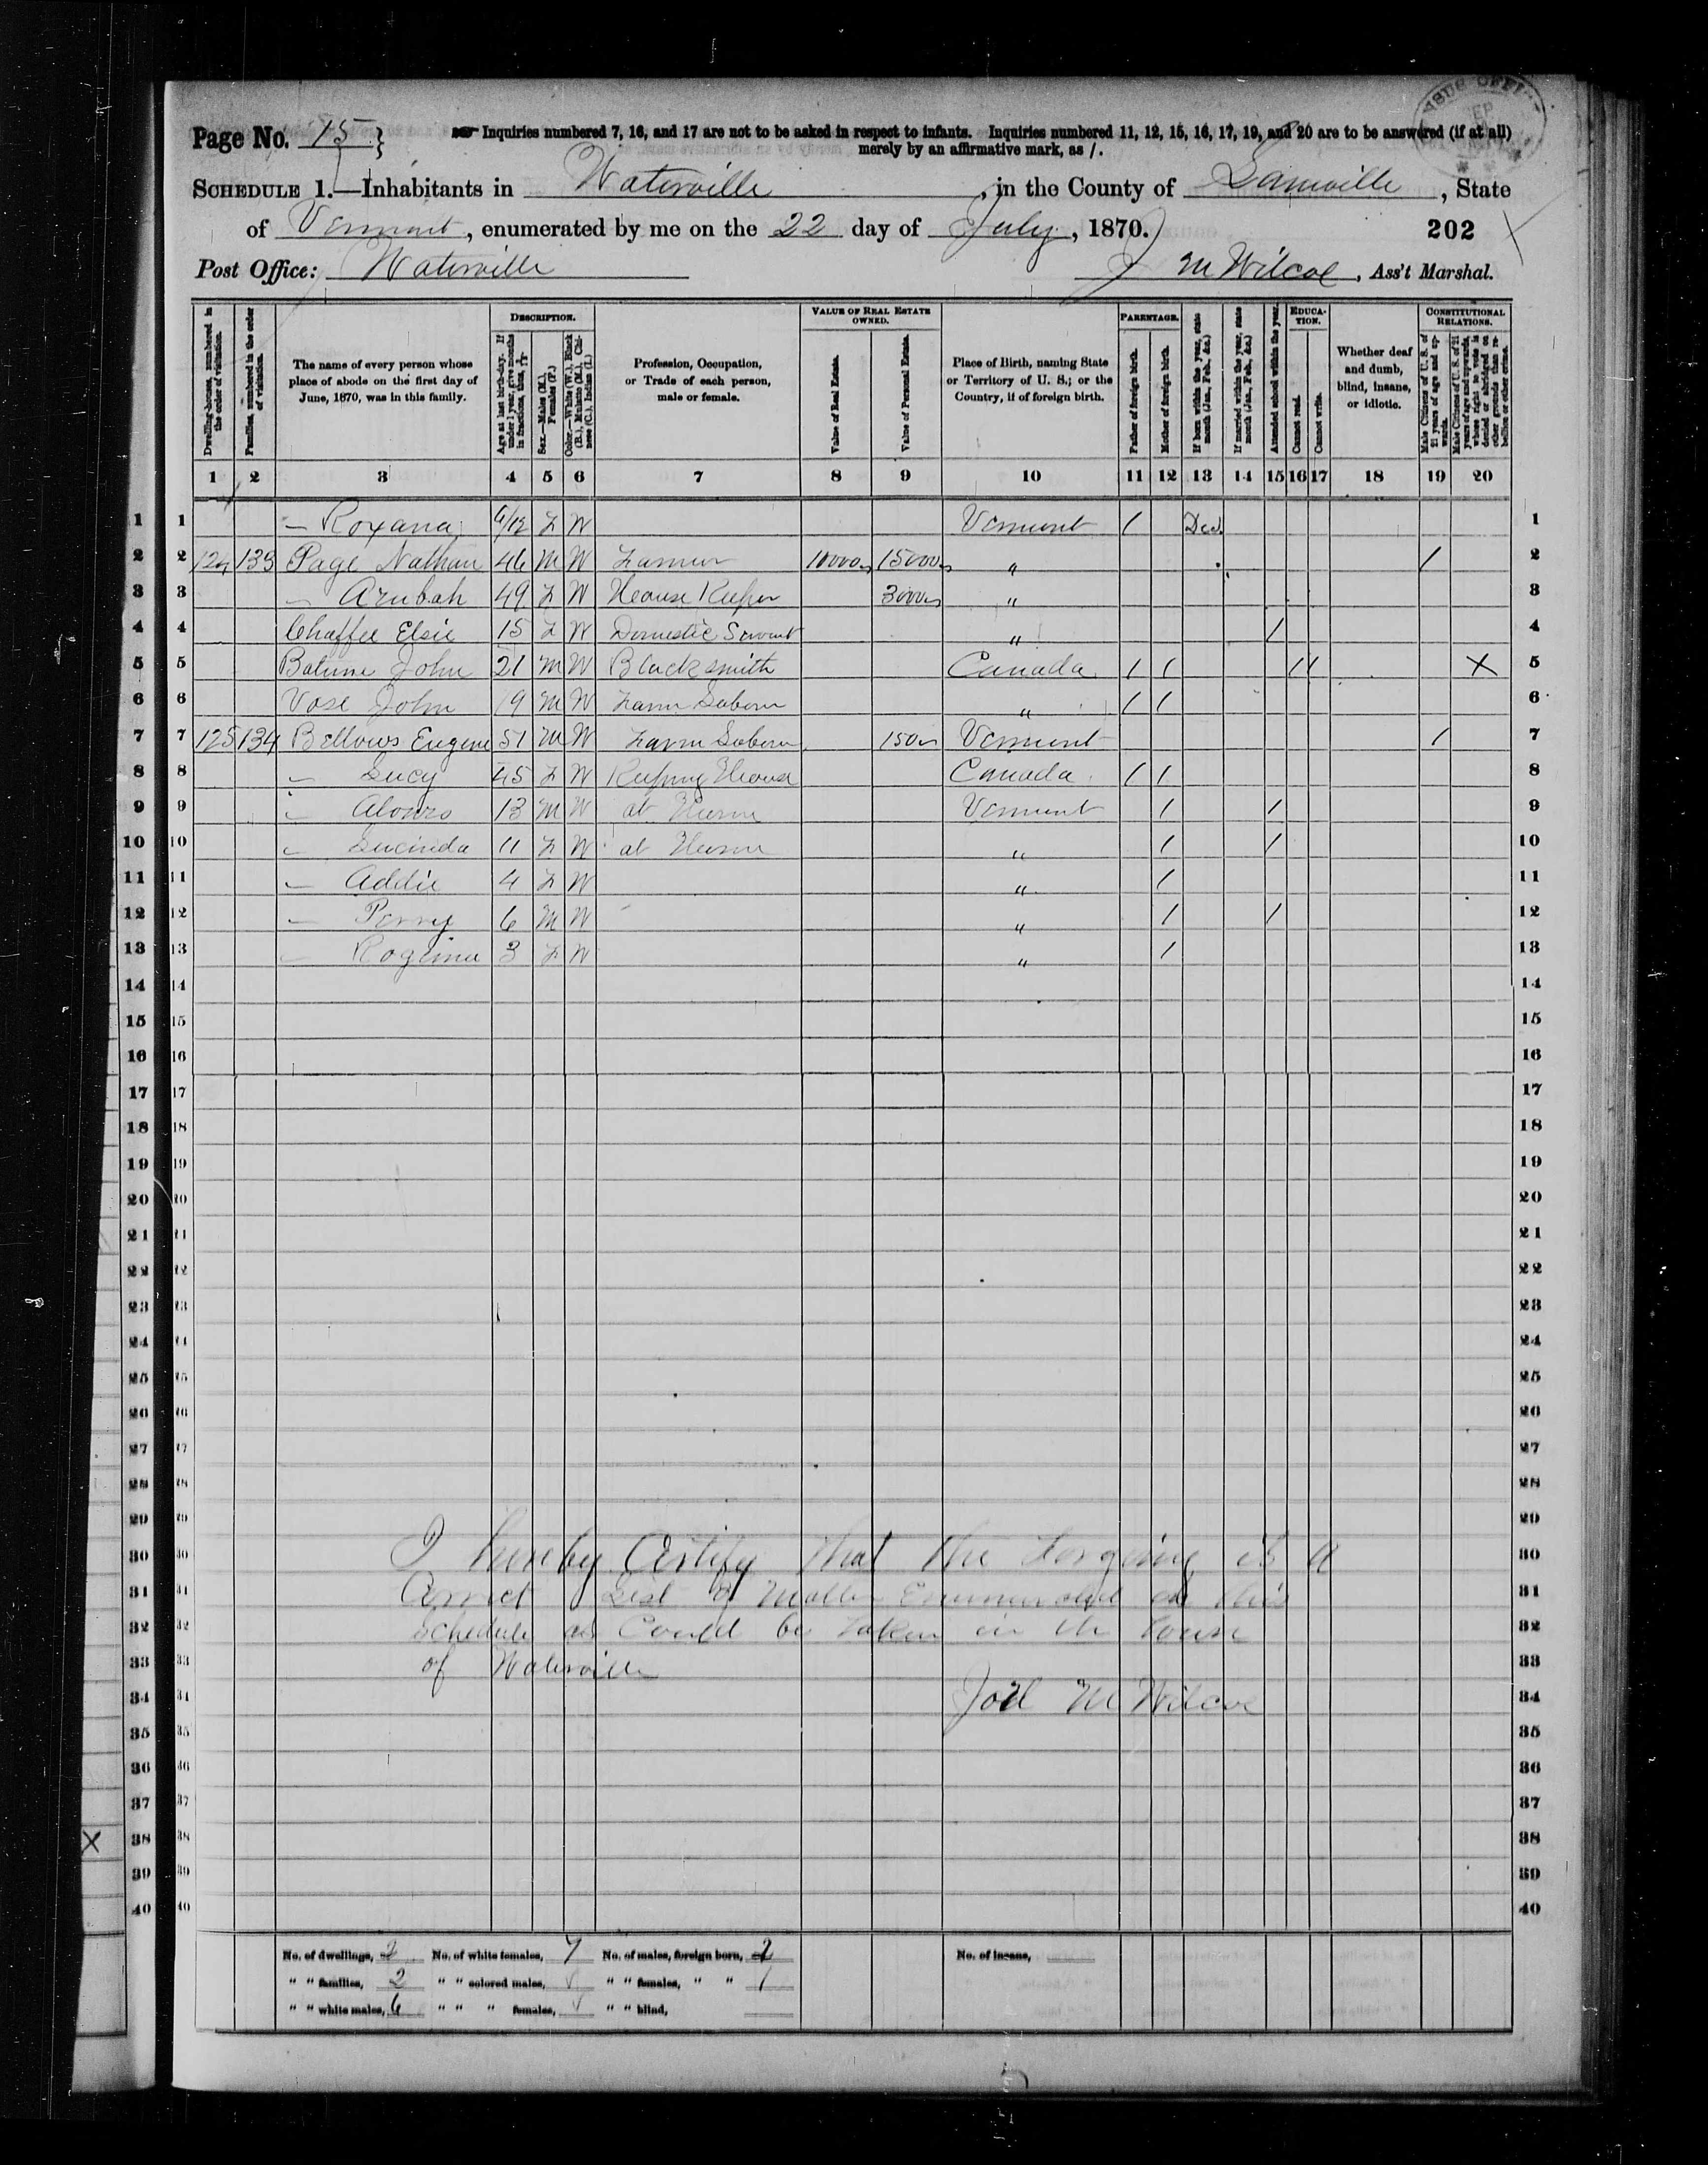 Page No. 15
Inquiries numbered 7, 16, and 17 are not to be asked in respect to infants. Inquiries numbered 11, 12, 15, 16, 17, 19, and 20 are to be answered (if at all)
merely by an affirmative mark, as /.
SCHEDULE 1.—Inhabitants in Waterville, in the County of Lamoille, State
of Vermont, enumerated by me on the 22 day of July, 1870.
202
Post Office: Waterville
J M Wilcox, Ass't Marshal.
Dwelling-houses, numbered in the order of visitation.
Families, numbered in the order of visitation.
The name of every person whose place of abode on the first day of June, 1870, was in this family.
DESCRIPTION.
Age at last birth-day. If under 1 year, give months in fractions, thus, 3/12
Sex.—Males (M.), Females (F.)
Color.—White (W.), Black (B.), Mulatto (M.), Chinese (C.), Indian (I.)
Profession, Occupation, or Trade of each person, male or female.
VALUE OF REAL ESTATE OWNED.
Value of Real Estate.
Value of Personal Estate.
Place of Birth, naming State or Territory of U. S.; or the Country, if of foreign birth.
PARENTAGE.
Father of foreign birth.
Mother of foreign birth.
If born within the year, state month (Jan., Feb., &c.)
If married within the year, state month (Jan., Feb., &c.)
Attended school within the year.
EDUCATION.
Cannot read.
Cannot write.
Whether deaf and dumb, blind, insane, or idiotic.
CONSTITUTIONAL RELATIONS.
Male Citizens of U. S. of 21 years of age and upwards.
Male Citizens of U. S. of 21 years of age and upwards, whose right to vote is denied or abridged on other grounds than rebellion or other crime.
1 2 3 4 5 6 7 8 9 10 11 12 13 14 15 16 17 18 19 20
1 1 — Roxana /12 F W Vermont / Dec 1
2 2 124 133 Page Nathan 46 M W Farmer 10000 15000 " / 2
3 3 — Arubah 49 F W House Keeper 3000 " 3
4 4 Chaffee Elsie 15 F W Domestic Servant " / 4
5 5 John 21 M W Blacksmith Canada / / / / X 5
6 6 Vose John 19 M W Farm Laborer " / / 6
7 7 125 134 Bellows Eugene 51 M W Farm Laborer 150 Vermont / 7
8 8 — Lucy 45 F W Keeping House Canada / / 8
9 9 — Alonzo 13 M W at Home Vermont / / 9
10 10 — Lucinda 11 F W at Home " / / 10
11 11 — Addie 4 F W " / 11
12 12 — Perry 6 M W " / / 12
13 13 — 3 F W " / 13
14 14 14
15 15 15
16 16 16
17 17 17
18 18 18
19 19 19
20 20 20
21 21 21
22 22 22
23 23 23
24 24 24
25 25 25
26 26 26
27 27 27
28 28 28
29 29 29
30 30 I hereby Certify that the Forgoing is a 30
31 31 Correct List of Matter Enumerated on this 31
32 32 Schedule as Could be taken in the Town 32
33 33 of Waterville 33
34 34 Joel M Wilcox 34
35 35 35
36 36 36
37 37 37
X 38 38 38
39 39 39
40 40 40
No. of dwellings, 2 No. of white females, 7 No. of males, foreign born, 2 No. of insane,
" " families, 2 " " colored males, " " females, " " 1
" " white males, 6 " " " females, " " blind,